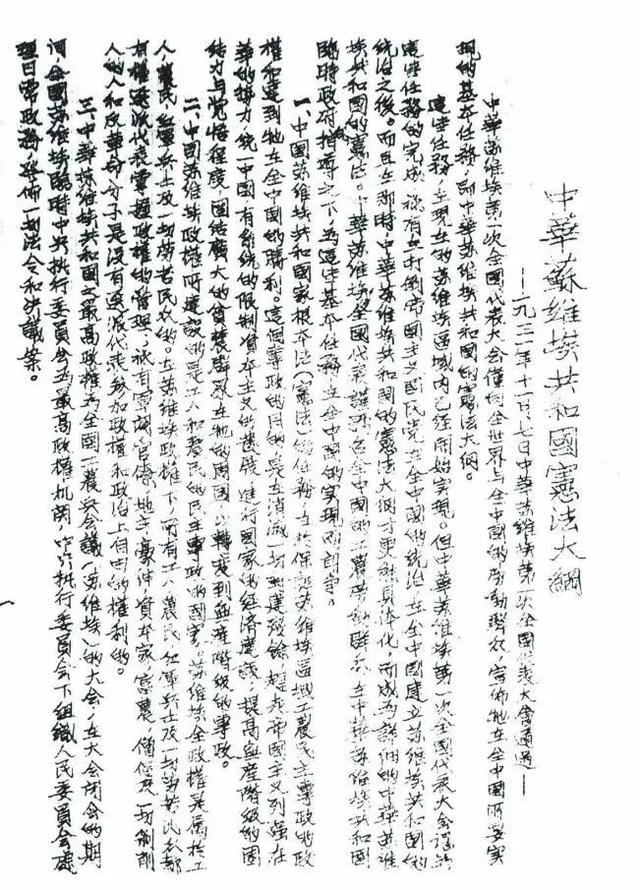 中華蘇維埃共和國憲法大綱
——一九三一年十一月七日中華蘇維埃第一次全國代表大會通過——
中華蘇維埃第一次全國代表大會僅向全世界与全中國的勞動群众，宣佈牠在全中國所要实
現的基本任務，即中華蘇維埃共和國的憲法大綱。
這些任務，在現在的苏維埃區域内已經開始实現。但中華苏維埃第一次全國代表大会認為
這些任務的完成，祗有在打倒帝國主义國民党在全中國的統治，在全中國建立苏維埃共和國的
統治之後。而且在那時，中華苏維埃共和國的憲法大綱才更能具体化，而成為詳細的中華苏維
埃共和國的憲法。中華苏維埃全國代表大会謹号召全中國的工農劳動群众，在中華苏維埃共和國
臨時政府指導之下，為這些基本任務在全中國的实現而鬥争。
一、中國苏維埃共和國家根本法（憲法）的任務，在於保証苏維埃區域工農民主專政的政
權和達到牠在全中國的勝利。這個專政的目的，是在消滅一切封建殘餘，趕走帝國主义列强在
華的勢力，統一中國，有系統的限制資本主义的發展，進行國家的經済建設，提高無産階級的團
結力与觉悟程度，團結廣大的貧農群众在牠的周圍，以轉变到無産階級的專政。
二、中國苏維埃政權所建設的是工人和農民的民主專政的國家。苏維埃全政權是属於工
人，農民，紅軍兵士及一切劳苦民众的。在苏維埃政權下，所有工人，農民，紅軍兵士及一切劳苦民众都
有權選派代表掌握政權的管理，祗有軍閥，官僚，地主，豪紳，資本家，富農，僧侣及一切剝削
人的人和反革命分子是没有選派代表参加政權和政治上自由的權利的。
三、中華苏維埃共和國之最高政權為全國工農兵会議（苏維埃）的大会，在大会閉会的期
间，全國苏維埃臨時中央执行委員会為最高政權机関，中央执行委員会下組織人民委員会處
理日常政務，發佈一切法令和決議案。